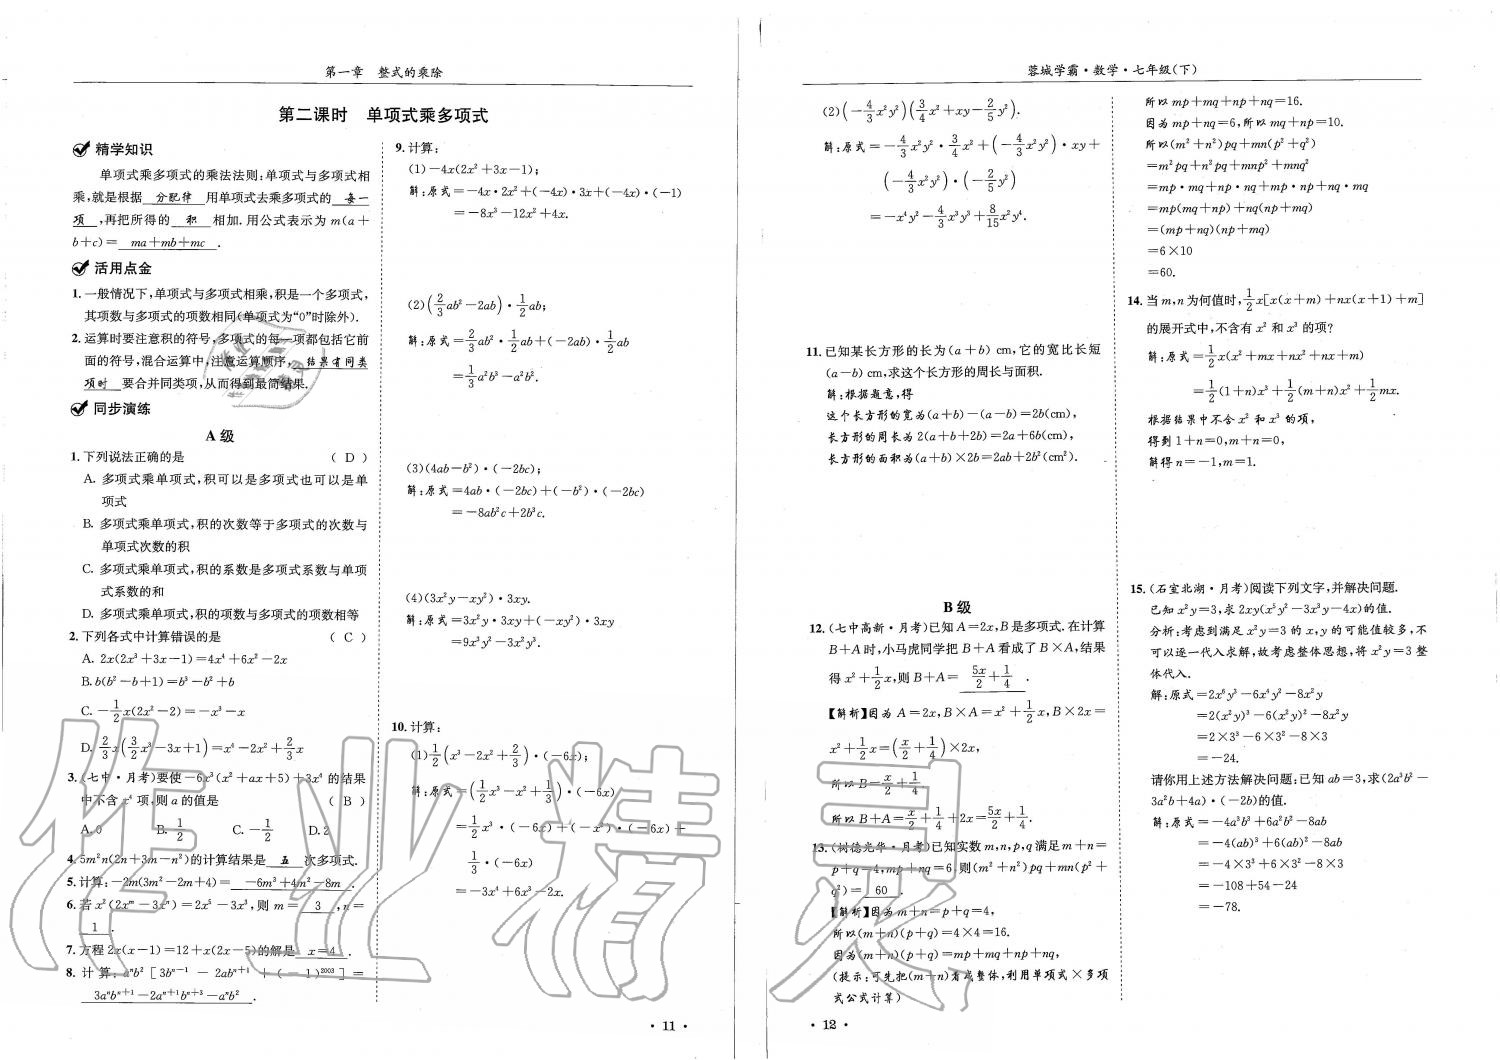 第一章　整式的乘除
第二课时　单项式乘多项式
精学知识
单项式乘多项式的乘法法则:单项式与多项式相
乘,就是根据 分配律 用单项式去乘多项式的 每一
项 ,再把所得的 积 相加.用公式表示为 m(a+
b+c)= ma+mb+mc .
活用点金
1.一般情况下,单项式与多项式相乘,积是一个多项式,
其项数与多项式的项数相同(单项式为“0”时除外).
2.运算时要注意积的符号,多项式的每一项都包括它前
面的符号,混合运算中,注意运算顺序, 结果有同类
项时 要合并同类项,从而得到最简结果.
同步演练
A 级
1.下列说法正确的是 ( D )
A. 多项式乘单项式,积可以是多项式也可以是单
项式
B. 多项式乘单项式,积的次数等于多项式的次数与
单项式次数的积
C. 多项式乘单项式,积的系数是多项式系数与单项
式系数的和
D. 多项式乘单项式,积的项数与多项式的项数相等
2.下列各式中计算错误的是 ( C )
A. 2x(2x³+3x−1)=4x⁴+6x²−2x
B. b(b²−b+1)=b³−b²+b
C. −1/2x(2x²−2)=−x³−x
D. 2/3x(3/2x³−3x+1)=x⁴−2x²+2/3x
3.(七中·月考)要使−6x³(x²+ax+5)+3x⁴的结果
中不含x⁴项,则a的值是 ( B )
A. 0　B. 1/2　C. −1/2　D. 2
4. 5m²n(2n+3m−n²)的计算结果是 五 次多项式.
5.计算:−2m(3m²−2m+4)= −6m³+4m²−8m .
6.若x²(2xᵐ−3xⁿ)=2x⁵−3x³,则m= 3 ,n=
1 .
7.方程2x(x−1)=12+x(2x−5)的解是 x=4 .
8.计算:aⁿb²[3bⁿ⁻¹−2abⁿ⁺¹+(−1)²⁰⁰³]=
3aⁿbⁿ⁺¹−2aⁿ⁺¹bⁿ⁺³−aⁿb² .
9.计算:
(1)−4x(2x²+3x−1);
解:原式=−4x·2x²+(−4x)·3x+(−4x)·(−1)
=−8x³−12x²+4x.
(2)(2/3ab²−2ab)·1/2ab;
解:原式=2/3ab²·1/2ab+(−2ab)·1/2ab
=1/3a²b³−a²b².
(3)(4ab−b²)·(−2bc);
解:原式=4ab·(−2bc)+(−b²)·(−2bc)
=−8ab²c+2b³c.
(4)(3x²y−xy²)·3xy.
解:原式=3x²y·3xy+(−xy²)·3xy
=9x³y²−3x²y³.
10.计算:
(1)1/2(x³−2x²+2/3)·(−6x);
解:原式=(1/2x³−x²+1/3)·(−6x)
=1/2x³·(−6x)+(−x²)·(−6x)+
1/3·(−6x)
=−3x⁴+6x³−2x.
· 11 ·
蓉城学霸·数学·七年级(下)
(2)(−4/3x²y²)(3/4x²+xy−2/5y²).
解:原式=−4/3x²y²·3/4x²+(−4/3x²y²)·xy+
(−4/3x²y²)·(−2/5y²)
=−x⁴y²−4/3x³y³+8/15x²y⁴.
11.已知某长方形的长为(a+b) cm,它的宽比长短
(a−b) cm,求这个长方形的周长与面积.
解:根据题意,得
这个长方形的宽为(a+b)−(a−b)=2b(cm),
长方形的周长为2(a+b+2b)=2a+6b(cm),
长方形的面积为(a+b)×2b=2ab+2b²(cm²).
B 级
12.(七中高新·月考)已知A=2x,B是多项式.在计算
B+A时,小马虎同学把B+A看成了B×A,结果
得x²+1/2x,则B+A= 5x/2+1/4 .
【解析】因为A=2x,B×A=x²+1/2x,B×2x=
x²+1/2x=(x/2+1/4)×2x,
所以B=x/2+1/4
所以B+A=x/2+1/4+2x=5x/2+1/4.
13.(树德光华·月考)已知实数m,n,p,q满足m+n=
p+q=4,mp+nq=6,则(m²+n²)pq+mn(p²+
q²)= 60 .
【解析】因为m+n=p+q=4,
所以(m+n)(p+q)=4×4=16.
因为(m+n)(p+q)=mp+mq+np+nq,
(提示:可先把(m+n)看成整体,利用单项式×多项
式公式计算)
所以mp+mq+np+nq=16.
因为mp+nq=6,所以mq+np=10.
所以(m²+n²)pq+mn(p²+q²)
=m²pq+n²pq+mnp²+mnq²
=mp·mq+np·nq+mp·np+nq·mq
=mp(mq+np)+nq(np+mq)
=(mp+nq)(np+mq)
=6×10
=60.
14.当m,n为何值时,1/2x[x(x+m)+nx(x+1)+m]
的展开式中,不含有x²和x³的项?
解:原式=1/2x(x²+mx+nx²+nx+m)
=1/2(1+n)x³+1/2(m+n)x²+1/2mx.
根据结果中不含x²和x³的项,
得到1+n=0,m+n=0,
解得n=−1,m=1.
15.(石室北湖·月考)阅读下列文字,并解决问题.
已知x²y=3,求2xy(x⁵y²−3x³y−4x)的值.
分析:考虑到满足x²y=3的x,y的可能值较多,不
可以逐一代入求解,故考虑整体思想,将x²y=3整
体代入.
解:原式=2x⁶y³−6x⁴y²−8x²y
=2(x²y)³−6(x²y)²−8x²y
=2×3³−6×3²−8×3
=−24.
请你用上述方法解决问题:已知ab=3,求(2a³b²−
3a²b+4a)·(−2b)的值.
解:原式=−4a³b³+6a²b²−8ab
=−4(ab)³+6(ab)²−8ab
=−4×3³+6×3²−8×3
=−108+54−24
=−78.
· 12 ·
作业精灵